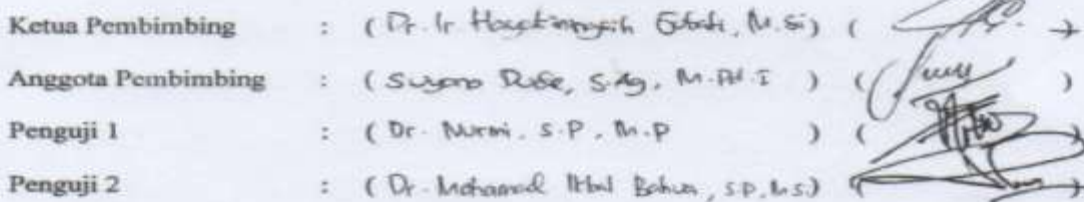 Ketua Pembimbing : ( Dr. Ir Hayatiningsih Gubali, M.Si) ( )
Anggota Pembimbing : ( Suyono Dude, S.Ag, M.Pd.I ) ( )
Penguji 1 : ( Dr. Nurmi, S.P, M.P ) ( )
Penguji 2 : ( Dr. Mohamad Ikbal Bahua, SP, M.S.) ( )